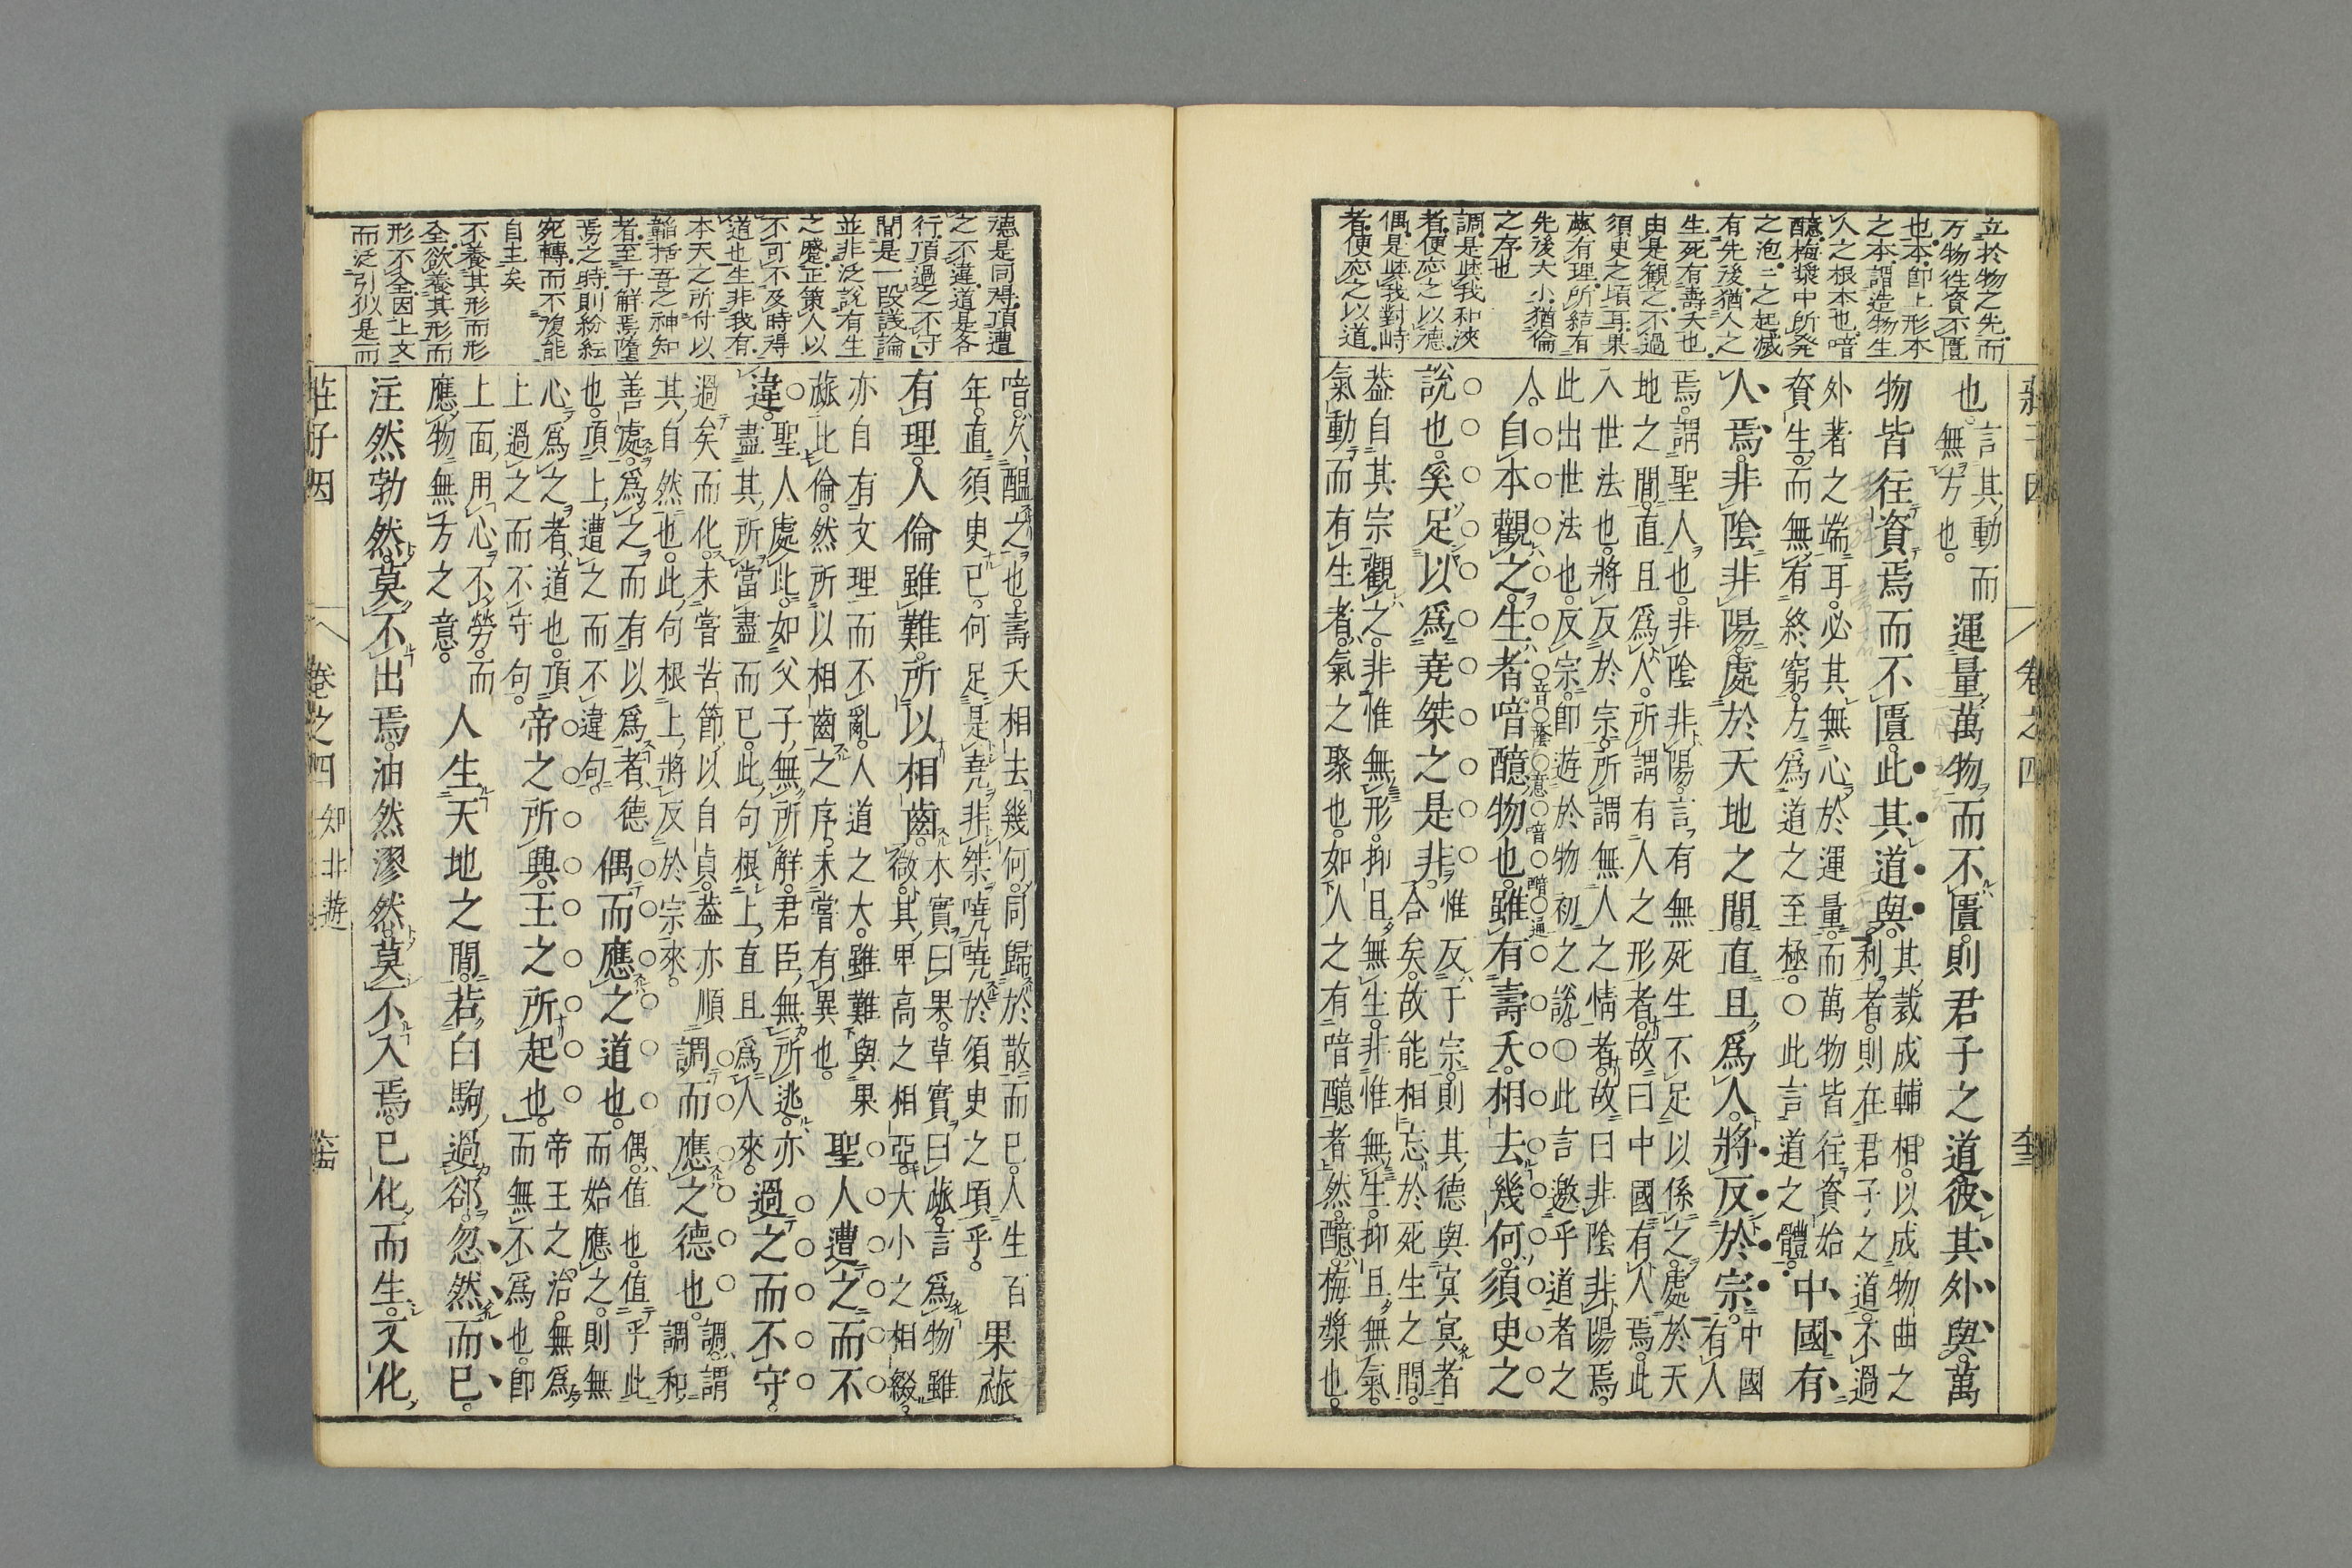 立於物之先而
万物徃資不匱
也本卽上形本
之本謂造物生
人之根本也喑
醷梅漿中所発
之泡ニ之起滅
有先後猶人之
生死有壽夭也
由是観之不過
須臾之頃耳果
蓏有理所結有
先後大小猶倫
之存也
調是與我和浹
者便應之以德
偶是與我對峙
者便應之以道
莊子因 卷之四
也。
言其動而
無方也。
運量萬物而不匱。則君子之道。彼其外與。萬
物皆往資焉而不匱。此其道與。
其裁成輔相。以成物曲之
利者。則在君子之道。不過
外著之端耳。必其無心於運量。而萬物皆往資始
資生。而無有終窮。方爲道之至極。○此言道之體。
中國有
人焉。非陰非陽。處於天地之間。直且爲人。將反於宗。
中國
有人
焉。謂聖人也。非陰非陽。言有無死生不足以係之。處於天
地之間。直且爲人。所謂有人之形者。故曰中國有人焉。此
入世法也。將反於宗。所謂無人之情者。故曰非陰非陽焉。
此出世法也。反宗。卽遊於物初之說。○此言邀乎道者之
人。
自本觀之。生者喑醷物也。雖有壽夭。相去幾何。須臾之
音蔭○憶○喑○醷○通
說也。奚足以爲堯桀之是非。
惟反于宗。則其德與冥冥者
合矣。故能相忘於死生之間。
蓋自其宗觀之。非惟無形。抑且無生。非惟無生。抑且無氣。
氣動而有生者。氣之聚也。如人之有喑醷者然。醷梅漿也。
德是同得頂遭
之不違道是各
行頂過之不守
間是一段議論
並非泛說有生
之蹙正策人以
不可不及時得
道也生非我有
本天之所付以
韜括吾之神知
者至于解焉墮
焉之時則紛紜
宛轉而不複能
自主矣
不養其形而形
全欲養其形而
形不全因上文
而泛引似是而
喑。久醞之也。壽夭相去幾何。同歸於散而已。人生百
年。直須臾已。何足是堯非桀。嘵嘵於須臾之頃乎。
果蓏
有理。人倫雖難。所以相齒。
木實曰果。草實曰蓏。言爲物雖
微。其卑高之相亞。大小之相綴。
亦自有文理而不亂。人道之大。雖難與果
蓏比倫。然所以相齒之序。未嘗有異也。
聖人遭之而不
違。
聖人處此。如父子無所解。君臣無所逃。亦
盡其所當盡而已。此句根上直且爲人來。
過之而不守。
過矣而化。未嘗苦節以自貞。蓋亦順
其自然也。此句根上將反於宗來。
調而應之德也。
調謂
調和
善處。爲之而有以爲者。德
也。頂上遭之而不違句。
偶而應之道也。
偶。值也。值乎此
而始應之。則無
心爲之者。道也。頂
上過之而不守句。
帝之所興。王之所起也。
帝王之治。無爲
而無不爲也。卽
上面用心不勞。而
應物無方之意。
人生天地之間。若白駒過郤。忽然而已。
注然勃然。莫不出焉。油然漻然。莫不入焉。已化而生。又化
莊子因 卷之四 知北遊